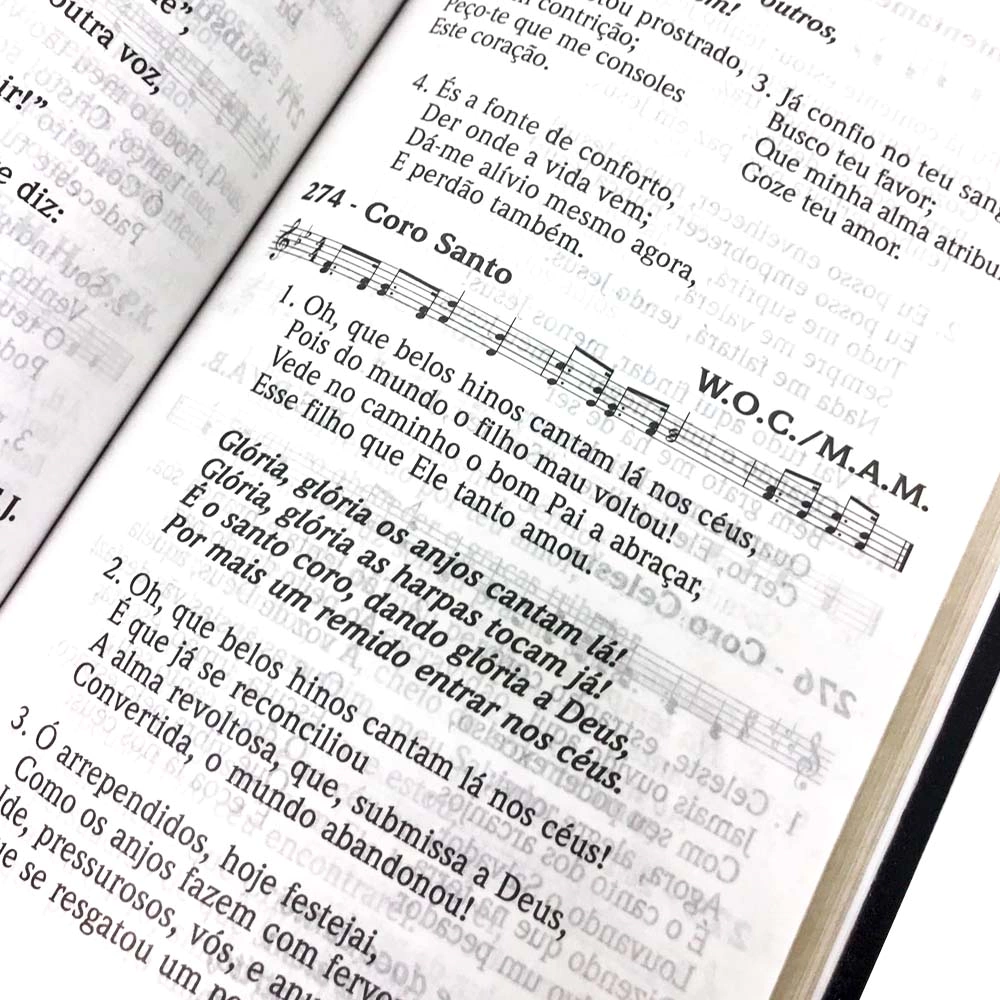 outra voz,
diz:
J.
outros,
prostrado,
contrição;
Peço-te que me consoles
Este coração.
4. És a fonte de conforto,
Der onde a vida vem;
Dá-me alívio mesmo agora,
E perdão também.
3. Já confio no teu
Busco teu favor;
Que minha alma
Goze teu amor.
274 - Coro Santo
W.O.C./M.A.M.
1. Oh, que belos hinos cantam lá nos céus,
Pois do mundo o filho mau voltou!
Vede no caminho o bom Pai a abraçar,
Esse filho que Ele tanto amou.
Glória, glória os anjos cantam lá!
Glória, glória as harpas tocam já!
É o santo coro, dando glória a Deus,
Por mais um remido entrar nos céus.
2. Oh, que belos hinos cantam lá nos céus!
É que já se reconciliou
A alma revoltosa, que, submissa a Deus,
Convertida, o mundo abandonou!
3. Ó arrependidos, hoje festejai,
Como os anjos fazem com
pressurosos, vós, e
se resgatou um